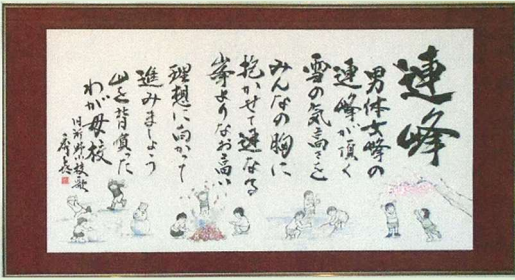 連峰
男体女峰の
連峰が頂く
雪の気高さを
みんなの胸に
抱かせて連なる
峯よりなお高い
理想に向かって
進みましょう
山を背負った
わが母校